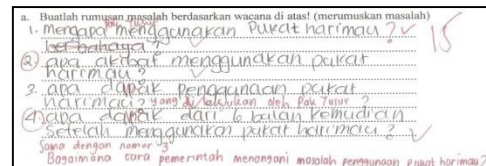 a. Buatlah rumusan masalah berdasarkan wacana di atas! (merumuskan masalah)
Pak Yusuf
1. Mengapa menggunakan Pukat harimau? ✓ 15
berbahaya?
2. apa akibat menggunakan pukat
harimau?
3. apa dapak penggunaan pukat
harimau? yang dilakukan oleh Pak Yusuf ?
4. apa dapak dari 6 bulan kemudian
setelah menggunakan pukat harimau?
Sama dengan nomer 3
Bagaimana cara pemerintah menangani masalah penggunaan pukat harimau?